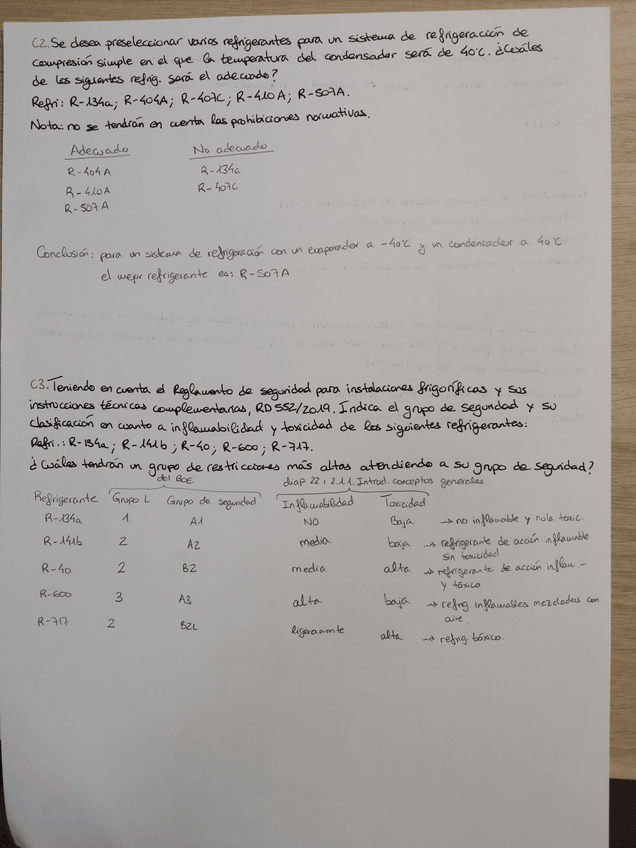 C2. Se desea preseleccionar varios refrigerantes para un sistema de refrigeración de
compresión simple en el que la temperatura del condensador será de 40°C. ¿Cuáles
de los siguientes refrig. será el adecuado?
Refri: R-134a; R-404A; R-407C; R-410A; R-507A.
Nota: no se tendrán en cuenta las prohibiciones normativas.
Adecuado No adecuado
R-404A R-134a
R-410A R-407C
R-507A
Conclusión: para un sistema de refrigeración con un evaporador a -40°C y un condensador a 40°C
el mejor refrigerante es: R-507A
C3. Teniendo en cuenta el Reglamento de seguridad para instalaciones frigoríficas y sus
instrucciones técnicas complementarias, RD 552/2019. Indica el grupo de seguridad y su
clasificación en cuanto a inflamabilidad y toxicidad de los siguientes refrigerantes:
Refri.: R-134a; R-141b; R-40; R-600; R-717.
¿Cuáles tendrán un grupo de restricciones más altas atendiendo a su grupo de seguridad?
del BOE diap 22: 2.1.1. Introd. conceptos generales
Refrigerante Grupo L Grupo de seguridad Inflamabilidad Toxicidad
R-134a 1 A1 NO Baja → no inflamable y nula toxic.
R-141b 2 A2 media baja → refrigerante de acción inflamable
sin toxicidad
R-40 2 B2 media alta → refrigerante de acción inflam-
y tóxico
R-600 3 A3 alta baja → refrig inflamables mezclados con
aire.
R-717 2 B2L ligeramente alta → refrig. tóxico.